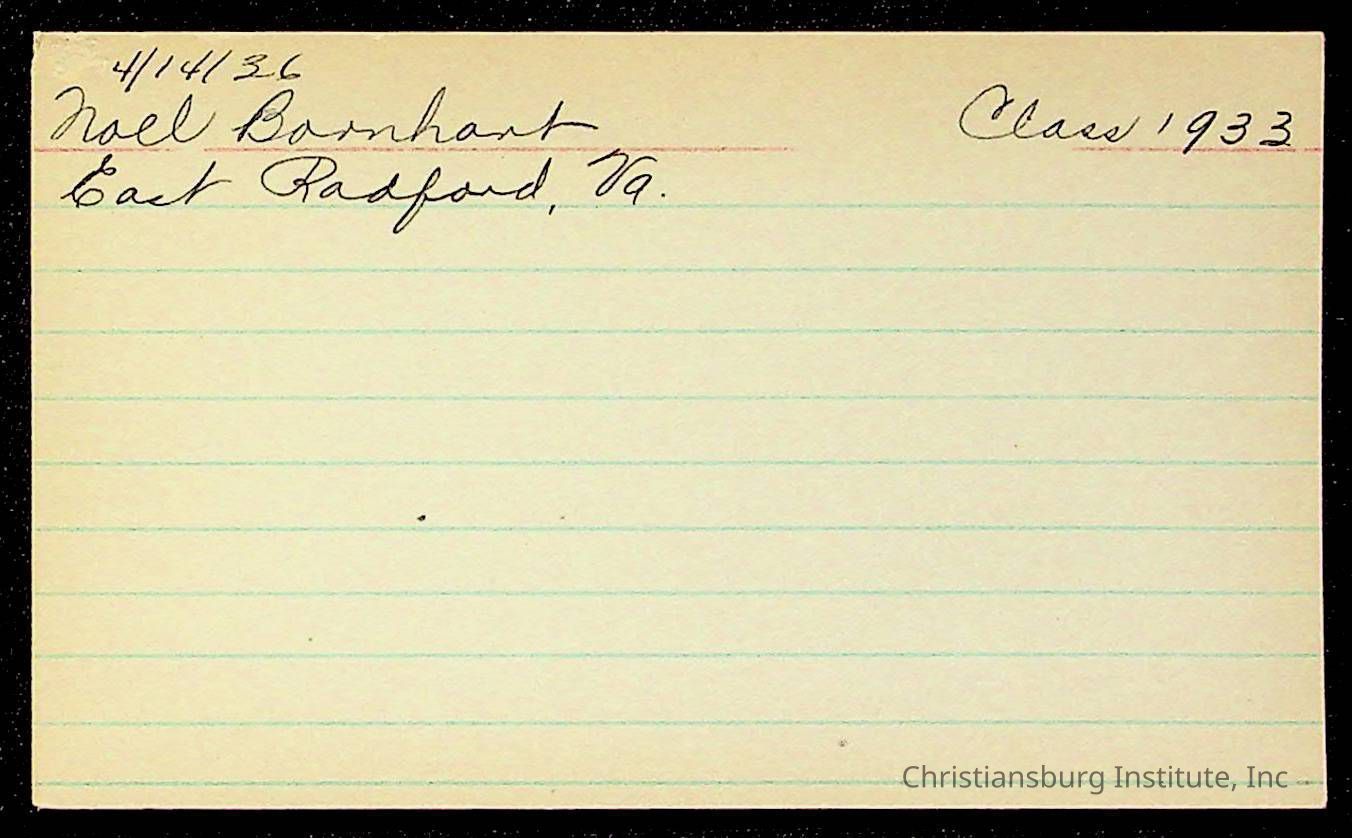 4/14/36
Noel Barnhart Class 1933
East Radford, Va.
Christiansburg Institute, Inc